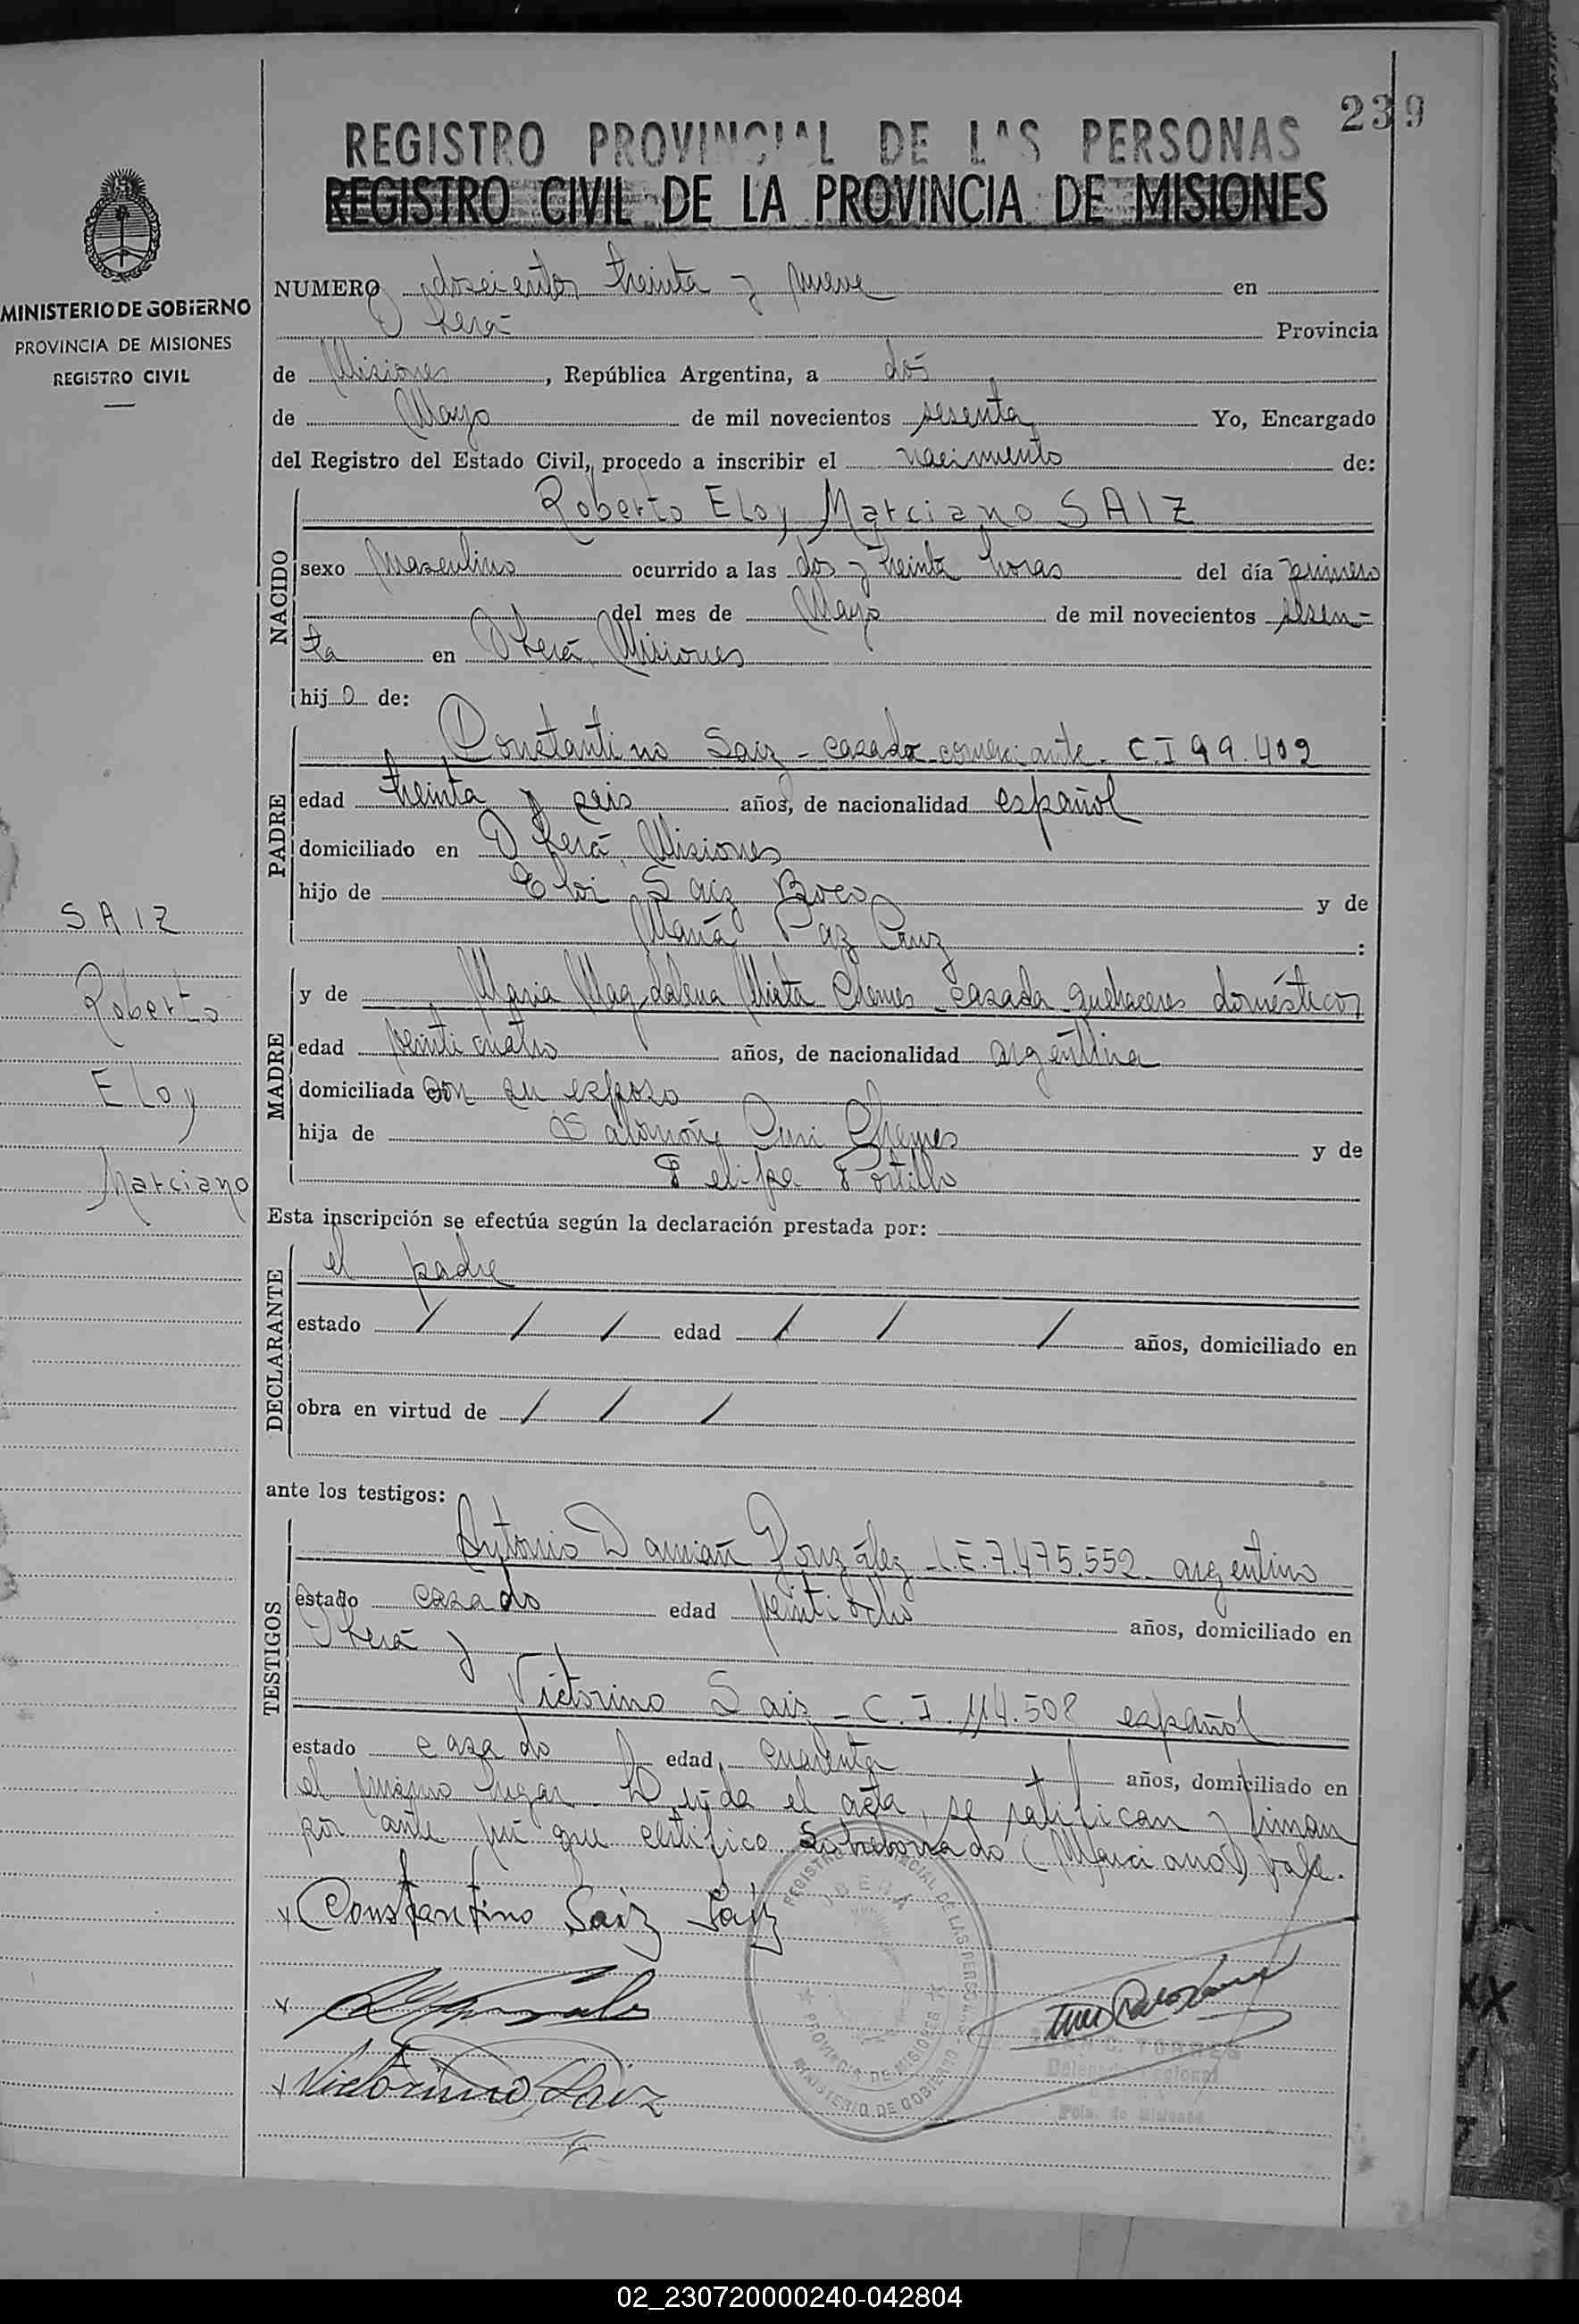 239
REGISTRO PROVINCIAL DE LAS PERSONAS
REGISTRO CIVIL DE LA PROVINCIA DE MISIONES
MINISTERIO DE GOBIERNO
PROVINCIA DE MISIONES
REGISTRO CIVIL
NUMERO doscientos treinta y nueve en
Oberá Provincia
de Misiones, República Argentina, a dos
de Mayo de mil novecientos sesenta Yo, Encargado
del Registro del Estado Civil, procedo a inscribir el nacimiento de:
NACIDO
Roberto Eloy Marciano SAIZ
sexo Masculino ocurrido a las dos y treinta horas del día primero
del mes de Mayo de mil novecientos sesen=
ta en Oberá, Misiones
hijo de:
PADRE
Constantino Saiz - casado comerciante. C.I 99.402
edad treinta y seis años, de nacionalidad español
domiciliado en Oberá, Misiones
hijo de Eloi Saiz y de
María Paz Cruz :
SAIZ
Roberto
Eloy
Marciano
MADRE
y de Maria Magdalena Mirta Chemes casada quehaceres domésticos
edad veinticuatro años, de nacionalidad argentina
domiciliada con su esposo
hija de Salomón Chemes y de
Felipa Portillo
Esta inscripción se efectúa según la declaración prestada por:
DECLARANTE
el padre
estado / / / edad / / / años, domiciliado en
obra en virtud de / / /
ante los testigos:
TESTIGOS
Antonio Damián González - L.E. 7.475.552 - argentino
estado casado edad veintiocho años, domiciliado en
Oberá y
Victorino Saiz - C.I. 114.508 español
estado casado edad cuarenta años, domiciliado en
el mismo lugar. Leída el acta, se ratifican y firman
por ante mí que certifico. Sobreborrado (Marciano) vale.
Constantino Saiz Saiz
Victorino Saiz
REGISTRO PROVINCIAL DE LAS PERSONAS
OBERÁ
PROVINCIA DE MISIONES
MINISTERIO DE GOBIERNO
C. TORRES
Delegado Regional
Pcia. de Misiones
02_230720000240-042804